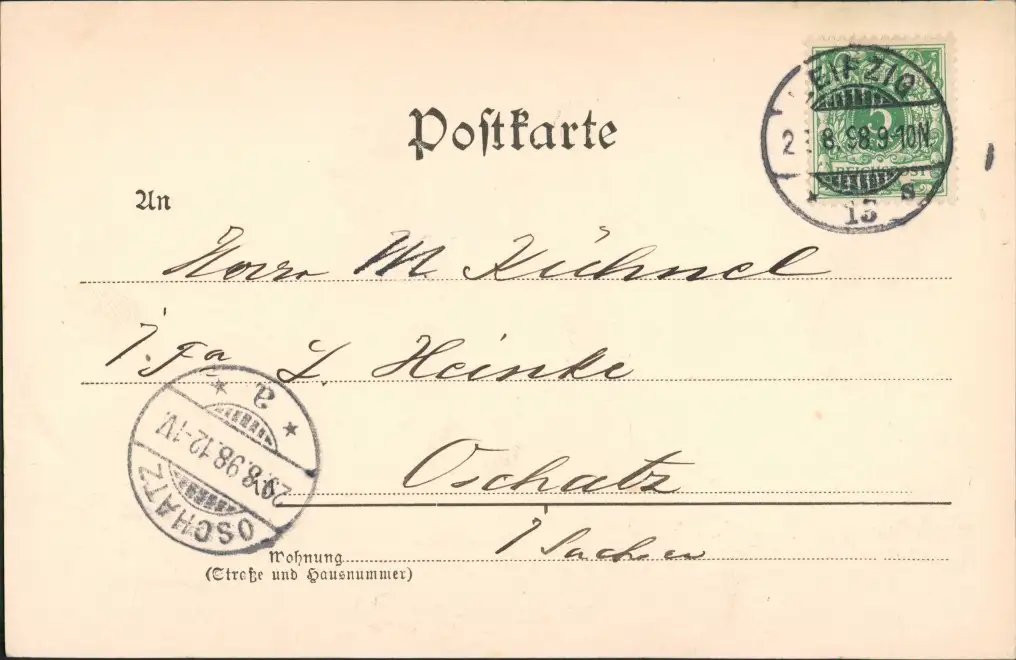 Postkarte
LEIPZIG
5
8.98 9-10N
REICHSPOST
* 13 s
An
Herrn M. Kühnel
i. Fa L. Heinke
* a *
8.98.12-1V.
OSCHATZ
in Oschatz
i/Sachsen
Wohnung
(Straße und Hausnummer)